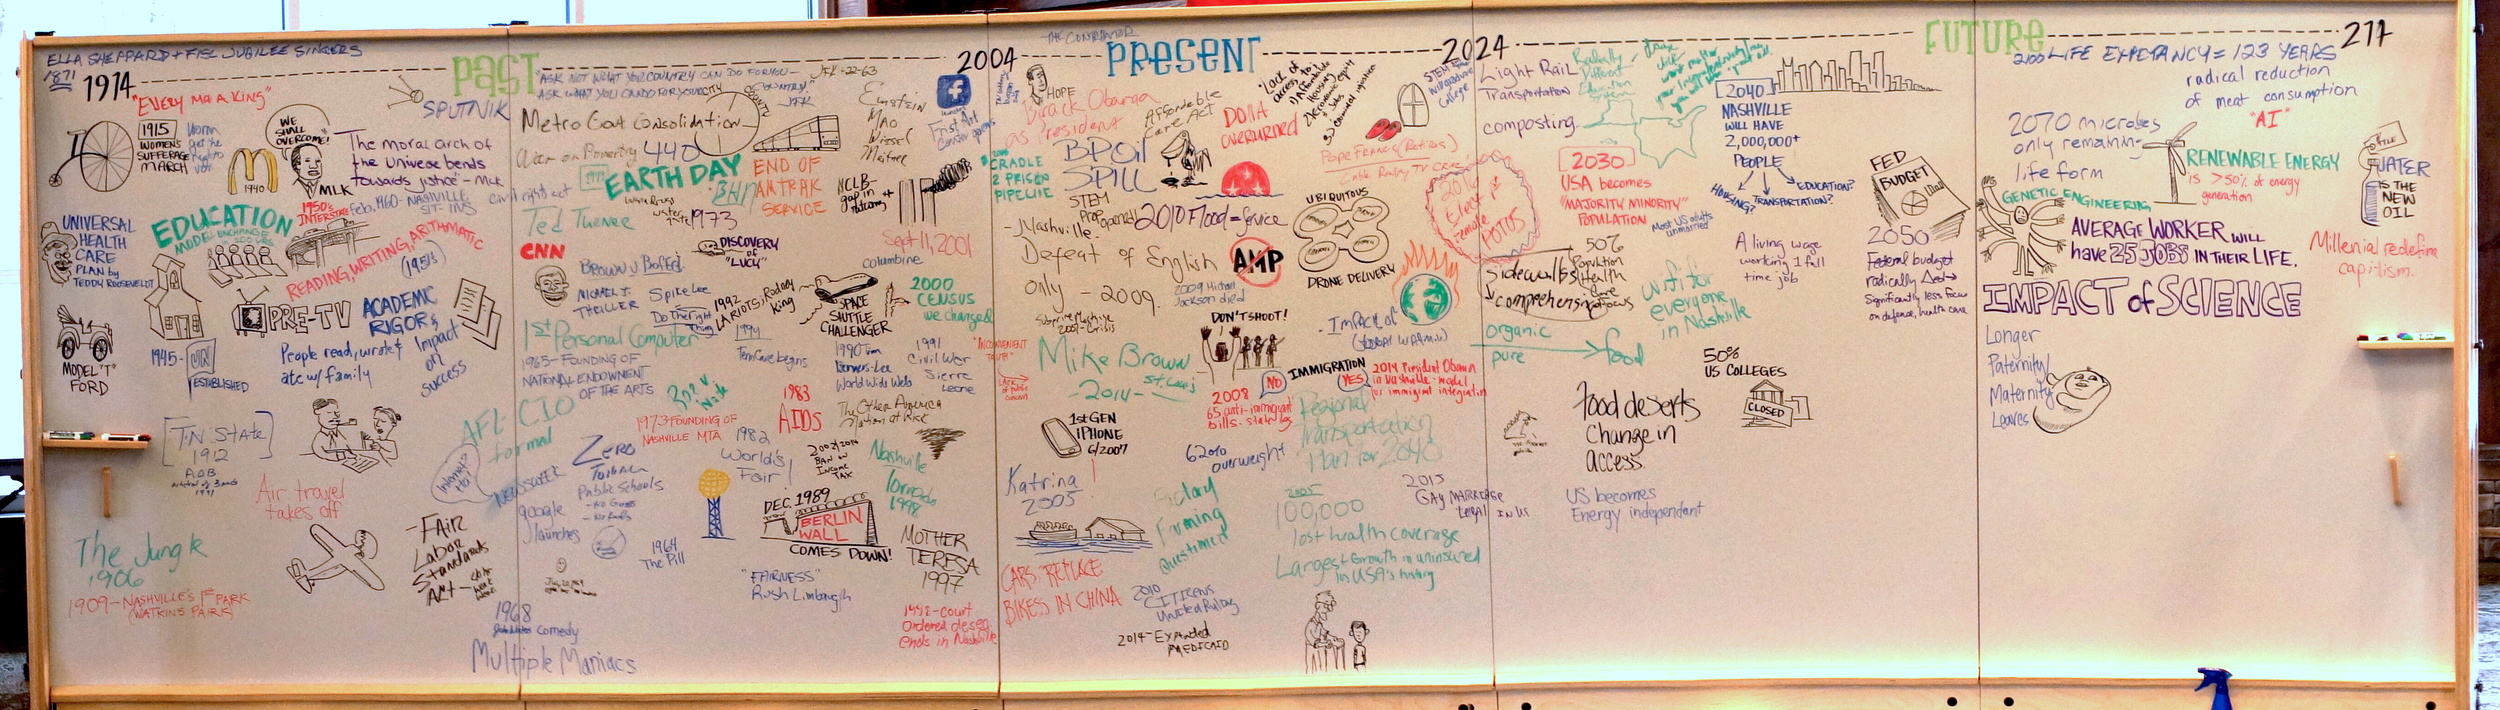 ELLA SHEPPARD + FISK JUBILEE SINGERS
1871
1914
PAST
2004
THE CONTRIBUTOR
PRESENT
2024
FUTURE
2100 LIFE EXPECTANCY = 123 YEARS
"EVERY MAN A KING"
SPUTNIK
1915
WOMEN'S
SUFFERAGE
MARCH
1940
WE
SHALL
OVERCOME!
MLK
The moral arch of
the Universe bends
towards justice" - MLK
1950's
INTERSTATE
Feb. 1960 - NASHVILLE
SIT-INS
UNIVERSAL
HEALTH
CARE
PLAN by
TEDDY ROOSEVELT
EDUCATION
MODEL UNCHANGED
in 200 YRS
READING, WRITING, ARITHMATIC
(1951)
MODEL "T"
FORD
1945-
UN
ESTABLISHED
PRE-TV
ACADEMIC
RIGOR &
Impact
on
success
People read, wrote &
ate w/ family
TN STATE
1912
Air travel
takes off
The Jungle
1906
1909 - NASHVILLE'S 1ST PARK
(WATKINS PARK)
AFL-CIO
formed
NEWSWEEK
-FAIR
Labor
Standards
Act -
1968
comedy
Multiple Maniacs
"ASK NOT WHAT YOUR COUNTRY CAN DO FOR YOU -
ASK WHAT YOU CAN DO FOR YOUR COUNTRY."
JFK
JFK 11-22-63
CITY
COUNTY
Metro Govt Consolidation
War on Poverty
440
Civil right act
EARTH DAY
BHN
1973
END OF
AMTRAK
SERVICE
Einstein
MAO
Wiesel
NCLB-
gap in
outcomes
f
Frist Art
Center opens
Ted Turner
CNN
DISCOVERY
of
"LUCY"
Sept 11, 2001
columbine
BROWN V BofEd.
MICHAEL J.
THRILLER
Spike Lee
Do The Right
Thing
1992
LA RIOTS, Rodney
King
SPACE
SHUTTLE
CHALLENGER
2000
CENSUS
we changed
1st Personal Computer
1994
TennCare begins
1965 - FOUNDING OF
NATIONAL ENDOWMENT
OF THE ARTS
1990 Tim
Berners-Lee
World Wide Web
1991
Civil War
Sierre
Leone
1973 - FOUNDING OF
NASHVILLE MTA
1983
AIDS
The Other America
Zero
Tolerance
Public Schools
- No Guns
google
launches
1982
World's
Fair!
2002/2014
BAN ON
INCOME
TAX
Nashville
Tornado
1998
DEC. 1989
BERLIN
WALL
COMES DOWN!
MOTHER
TERESA
1997
1964
The Pill
"FAIRNESS"
Rush Limbaugh
1998 - court
Ordered deseg
ends in Nashville
HOPE
Barack Obama
as President
Affordable
Care Act
DOMA
OVERTURNED
"Lack of
access to
CRADLE
2 PRISON
PIPELINE
BP Oil
SPILL
STEM
Pope FRANCIS
2010 Flood = service
-Nashville-
Defeat of English
Only - 2009.
AMP
UBIQUITOUS
DRONE DELIVERY
2009 Michael
Jackson died
2007-Crisis
"INCONVENIENT
TRUTH"
Mike Brown
-2014-
St. Louis
DON'T SHOOT!
- IMPACT of
Global Warming
NO
IMMIGRATION
YES
2014 President Obama
in Nashville - model
for immigrant integration
2008
65 anti-immigrant
bills - state leg
1st GEN
iPHONE
6/2007
Katrina
2005
62%
overweight
Regional
Transportation
Plan for 2040
Factory
Farming
Questioned
CARS "REPLACE
BIKES" IN CHINA
2010
CITIZENS
United Ruling
2014 - Expanded
MEDICAID
2005
100,000
lost health coverage
Largest Growth in uninsured
in USA's history
2015
GAY MARRIAGE
LEGAL IN US
2016
Elect 1st
female
POTUS
Light RAIL
Transportation
composting
Radically
Different
Education
System
2030
USA becomes
"MAJORITY MINORITY"
POPULATION
Most US adults
unmarried
2040
NASHVILLE
WILL HAVE
2,000,000+
PEOPLE
HOUSING?
TRANSPORTATION?
EDUCATION?
Sidewalks
comprehensive
50%
Population
Health
Care
focus
organic
pure
food
wifi for
everyone
in Nashville
A living wage
working 1 full
time job
50%
US COLLEGES
CLOSED
Food deserts
Change in
access.
US becomes
Energy independent
FED
BUDGET
2050
Federal budget
radically
Significantly less focus
on defense, health care
radical reduction
of meat consumption
"AI"
2070 microbes
only remaining
life form
RENEWABLE ENERGY
IS >50% of energy
generation
GENETIC ENGINEERING
WATER
IS THE
NEW
OIL
AVERAGE WORKER WILL
have 25 JOBS IN THEIR LIFE.
Millenial redefine
capitlism.
IMPACT of SCIENCE
Longer
Paternity/
Maternity
Leaves